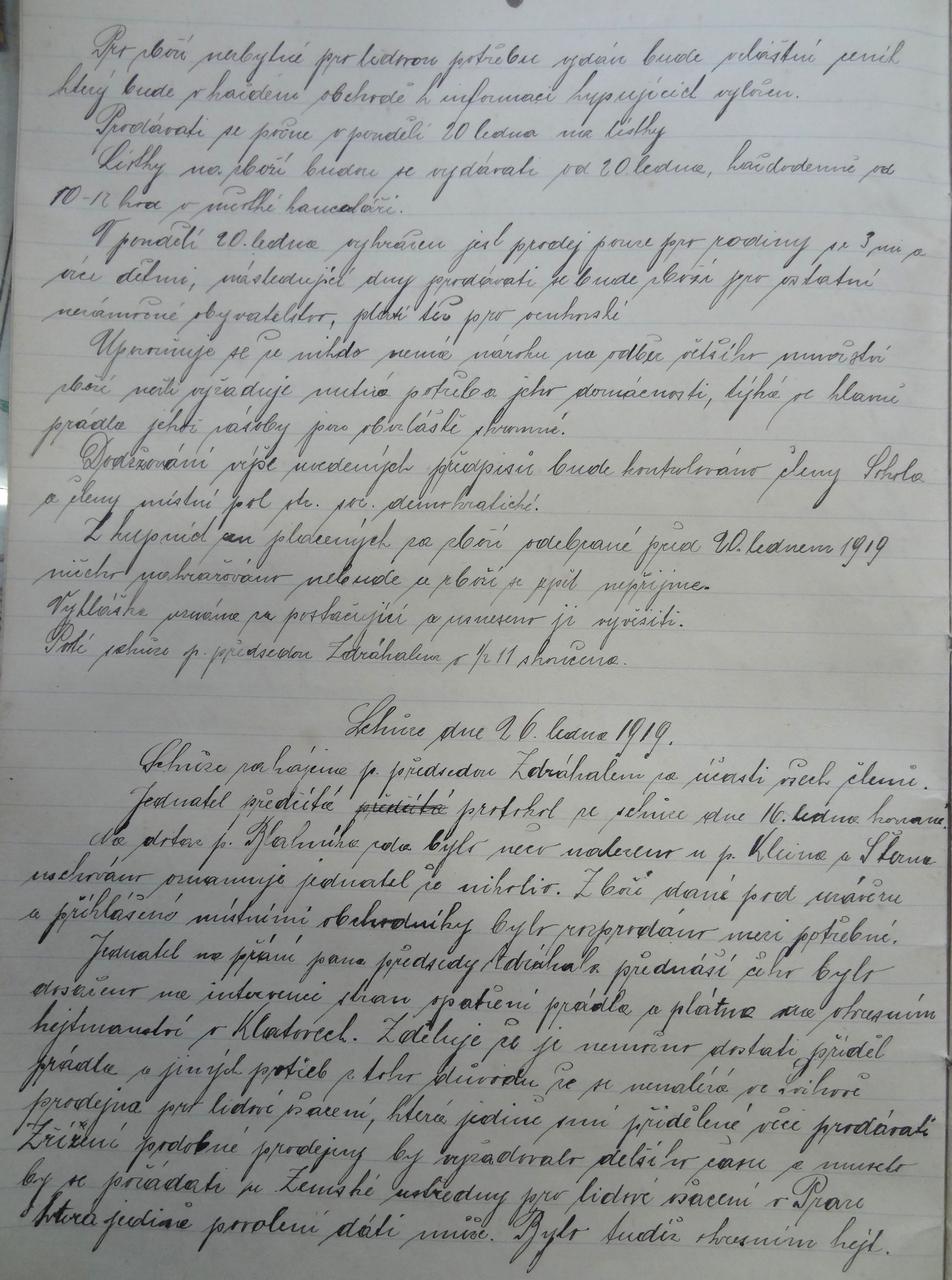 Pro zboží nezbytné pro lidovou potřebu vydán bude zvláštní ceník
který bude v každém obchodě k informaci kupujících vyložen.
Prodávati se počne v pondělí 20 ledna na lístky
Lístky na zboží budou se vydávati od 20 ledna, každodenně od
10-12 hod v městké kanceláři.
V pondělí 20. ledna vyhrazen jest prodej pouze pro rodiny se 3 mi a
více dětmi, následující dny prodávati se bude zboží pro ostatní
nezámožné obyvatelstvo, platí též pro venkovské
Upozorňuje se že nikdo nemá nároku na odběr většího množství
zboží nežli vyžaduje nutná potřeba jeho domácnosti, týká se hlavně
prádla jehož zásoby jsou obzvláště skromné.
Dodržování výše uvedených předpisů bude kontrolováno členy Sokola
a členy místní pol str. soc. demokratické.
Z kupních cen placených za zboží odebrané před 20. lednem 1919
nicho nahražováno nebude a zboží se zpět nepřijme.
Vyhláška uznána za postačující a usneseno ji vyvěsiti.
Poté schůze p. předsedou Zdráhalem o 1/2 11 skončena.
Schůze dne 26. ledna 1919.
Schůze zahájena p. předsedou Zdráhalem za účasti všech členů.
Jednatel předčítá předčítá protokol ze schůze dne 16. ledna konané.
Na dotaz p. zda bylo něco nalezeno u p. Kleina a Šterna
uschováno oznamuje jednatel že nikoliv. Zboží dané pod uzávěru
a přihlášeno místními obchodníky bylo rozprodáno mezi potřebné.
Jednatel na přání pana předsedy Zdráhala přednáší čeho bylo
dosaženo na intervenci stran opatření prádla a plátna na okresním
hejtmanství v Klatovech. Zděluje že je nemožno dostati příděl
prádla a jiných potřeb z toho důvodu že se nenalézá ve Švihově
prodejna pro lidové ošacení, která jedině smí přidělené věci prodávati
Zřízení podobné prodejny by vyžadovalo delšího času a muselo
by se požádati u Zemské ustředny pro lidové ošacení v Praze
která jedině povolení dáti může. Bylo tudíž okresním hejt.